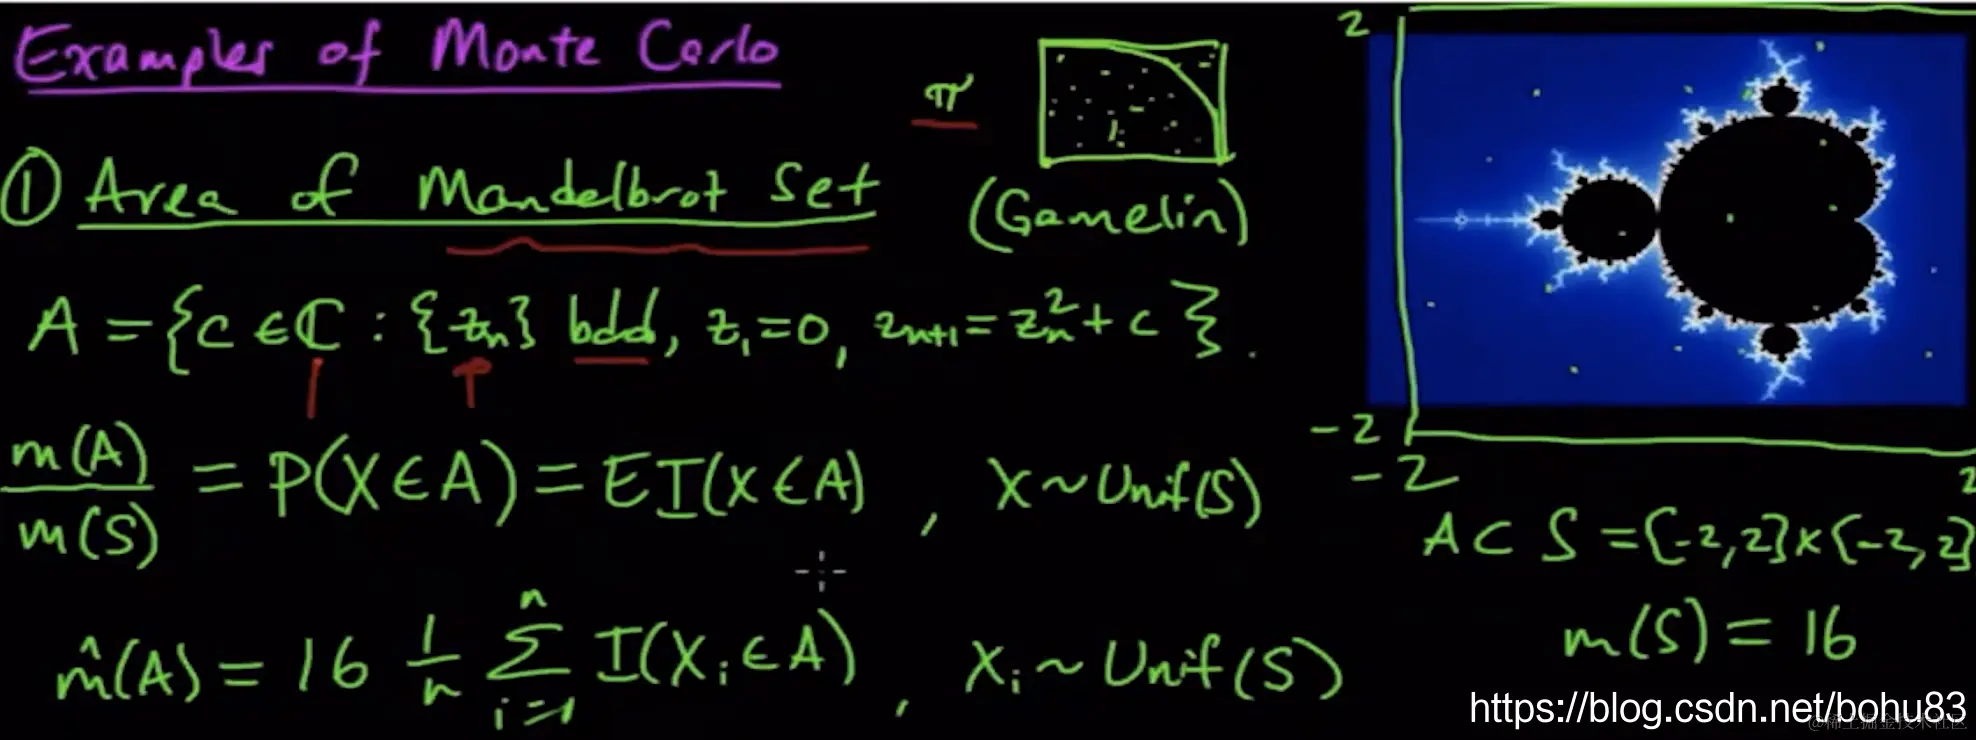 Examples of Monte Carlo
π
① Area of Mandelbrot Set
(Gamelin)
A = {c ∈ ℂ : {zₙ} bdd, z₁=0, zₙ₊₁=zₙ²+c}.
2
-2
-2
2
m(A)/m(S) = P(X∈A) = E I(X∈A), X~Unif(S)
A ⊂ S = [-2,2]×[-2,2]
m(S) = 16
m̂(A) = 16 1/n ∑ᵢ₌₁ⁿ I(Xᵢ∈A), Xᵢ~Unif(S)
https://blog.csdn.net/bohu83
@稀土掘金技术社区